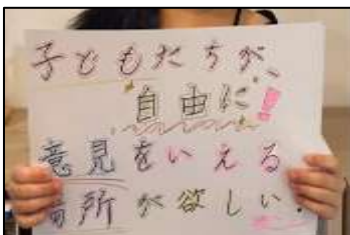 子どもたちが、
自由に!
意見をいえる
場所が欲しい!